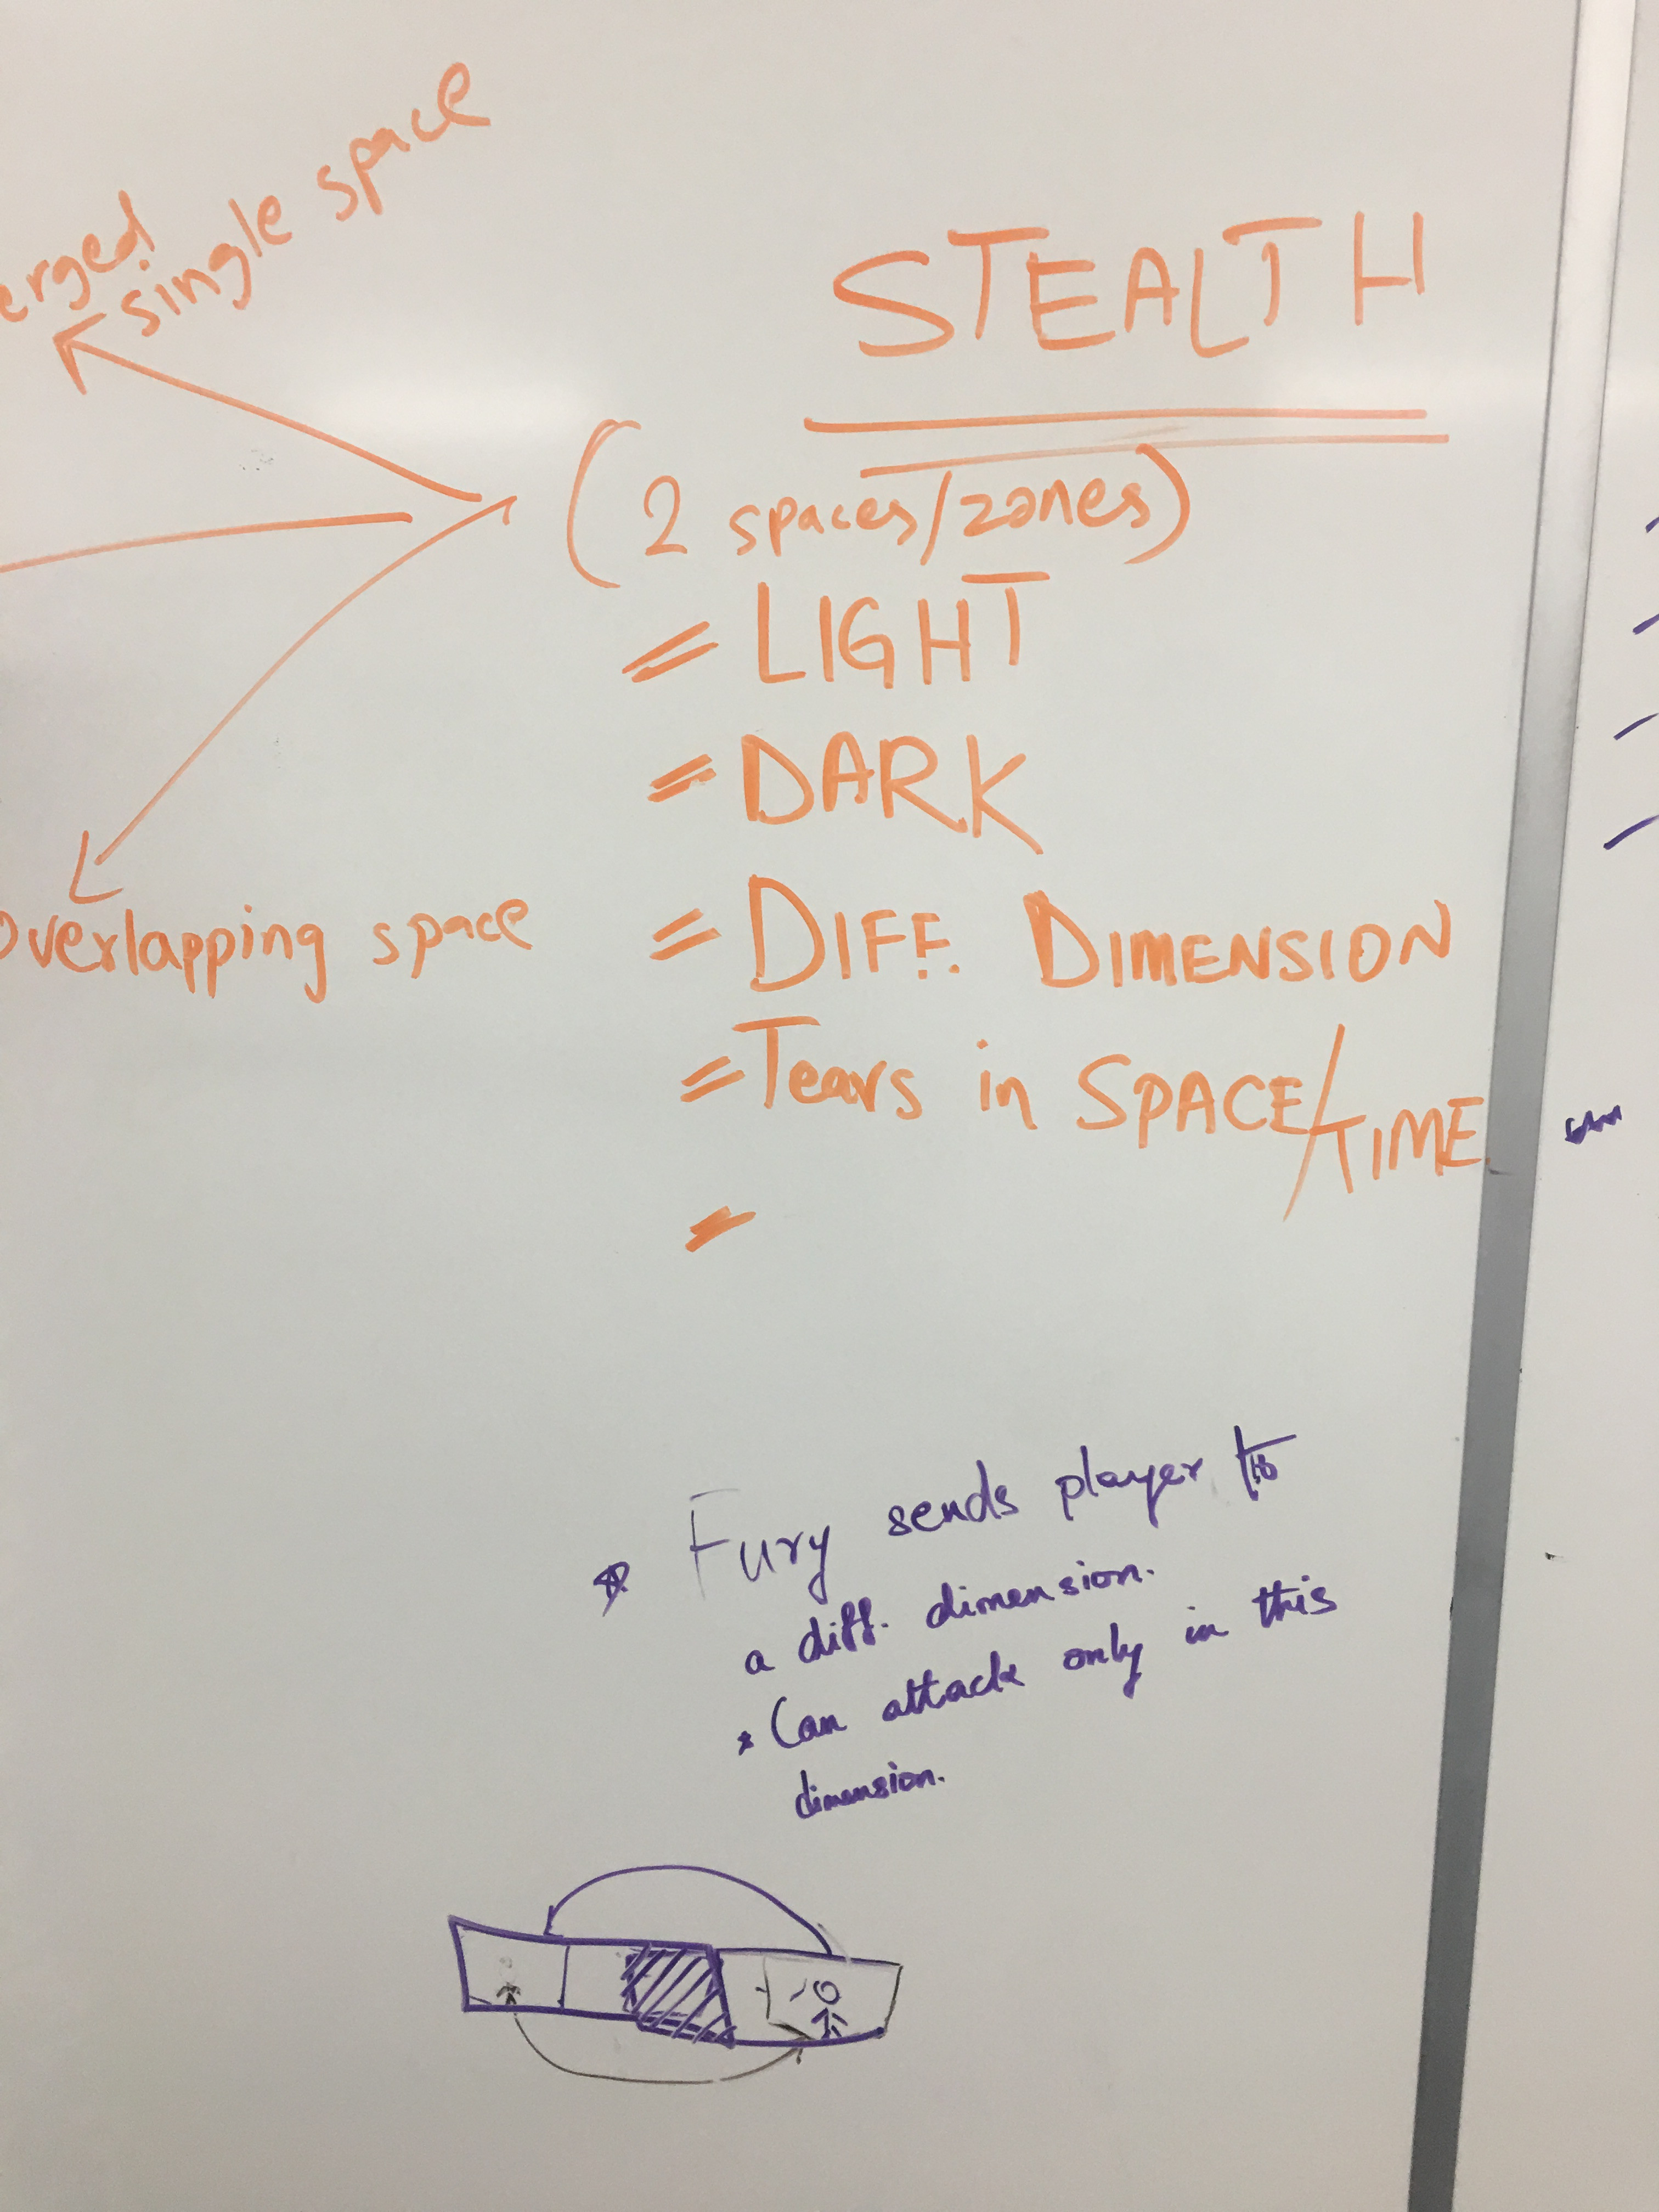 erged
single space
STEALTH
(2 spaces/zones)
= LIGHT
= DARK
Overlapping space
= DIFF. DIMENSION
= Tears in SPACE/TIME
-
* Fury sends player to
a diff. dimension.
* Can attack only in this
dimension.